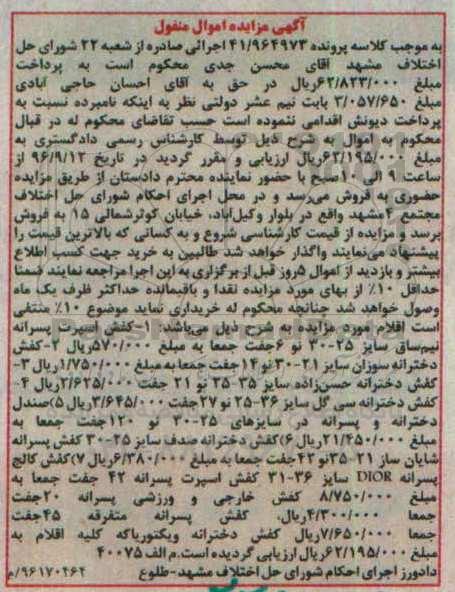 آگهی مزایده اموال منقول
به موجب کلاسه پرونده ۴۱/۹۶۴۹۷۳ اجرائی صادره از شعبه ۲۲ شورای حل
اختلاف مشهد آقای محسن جدی محکوم است به پرداخت
مبلغ ۶۲/۸۲۳/۰۰۰ریال در حق به آقای احسان حاجی آبادی
مبلغ ۳/۰۵۷/۶۵۰ بابت نیم عشر دولتی نظر به اینکه نامبرده نسبت به
پرداخت دیونش اقدامی ننموده است حسب تقاضای محکوم له در قبال
محکوم به اموال به شرح ذیل توسط کارشناس رسمی دادگستری به
مبلغ ۶۲/۱۹۵/۰۰۰ریال ارزیابی و مقرر گردید در تاریخ ۹۶/۹/۱۲ از
ساعت ۹ الی ۱۰صبح با حضور نماینده محترم دادستان از طریق مزایده
حضوری به فروش می‌رسد و در محل اجرای احکام شورای حل اختلاف
مجتمع ۴مشهد واقع در بلوار وکیل‌آباد، خیابان کوثرشمالی ۱۵ به فروش
برسد و مزایده از قیمت کارشناسی شروع و به کسانی که بالاترین قیمت را
پیشنهاد می‌نمایند واگذار خواهد شد طالبین به خرید جهت کسب اطلاع
بیشتر و بازدید از اموال ۵روز قبل از برگزاری به این اجرا مراجعه نمایند ضمنا
حداقل ۱۰٪ از بهای مورد مزایده نقدا و باقیمانده حداکثر ظرف یک ماه
وصول خواهد شد چنانچه محکوم له خریداری نماید موضوع ۱۰٪ منتفی
است اقلام مورد مزایده به شرح ذیل می‌باشد: ۱-کفش اسپرت پسرانه
نیم‌ساق سایز ۲۵-۳۰ نو ۶جفت جمعا به مبلغ ۵۷۰/۰۰۰ریال ۲-کفش
دخترانه سوزان سایز ۲۱-۳۰نو ۱۴جفت جمعا به مبلغ ۱/۷۵۰/۰۰۰ریال ۳-
کفش دخترانه حسن‌زاده سایز ۳۵-۲۵ نو ۲۱ جفت ۲/۶۲۵/۰۰۰ریال ۴-
کفش دخترانه سی گل سایز ۳۶-۲۵ نو ۲۷جفت ۳/۶۴۵/۰۰۰ریال ۵)صندل
دخترانه و پسرانه در سایزهای ۲۵-۳۰ نو ۱۲۰جفت جمعا به
مبلغ ۲۱/۴۵۰/۰۰۰ریال ۶)کفش دخترانه صدف سایز ۲۵-۳۰ کفش پسرانه
شایان ساز ۲۱-۳۵نو ۴۲جفت جمعا به مبلغ ۶/۳۸۰/۰۰۰ریال ۷)کفش کالج
پسرانه DIOR سایز ۳۶-۳۱ کفش اسپرت پسرانه ۴۲ جفت جمعا به
مبلغ ۸/۷۵۰/۰۰۰ کفش خارجی و ورزشی پسرانه ۲۰جفت
جمعا ۴/۳۰۰/۰۰۰ریال، کفش پسرانه متفرقه ۴۵جفت
جمعا ۷/۶۵۰/۰۰۰ریال کفش دخترانه ویکتوریاکه کلیه اقلام به
مبلغ ۶۲/۱۹۵/۰۰۰ریال ارزیابی گردیده است.م الف ۴۰۰۷۵
دادورز اجرای احکام شورای حل اختلاف مشهد-طلوع ۹۶۱۷۰۴۶۴/م